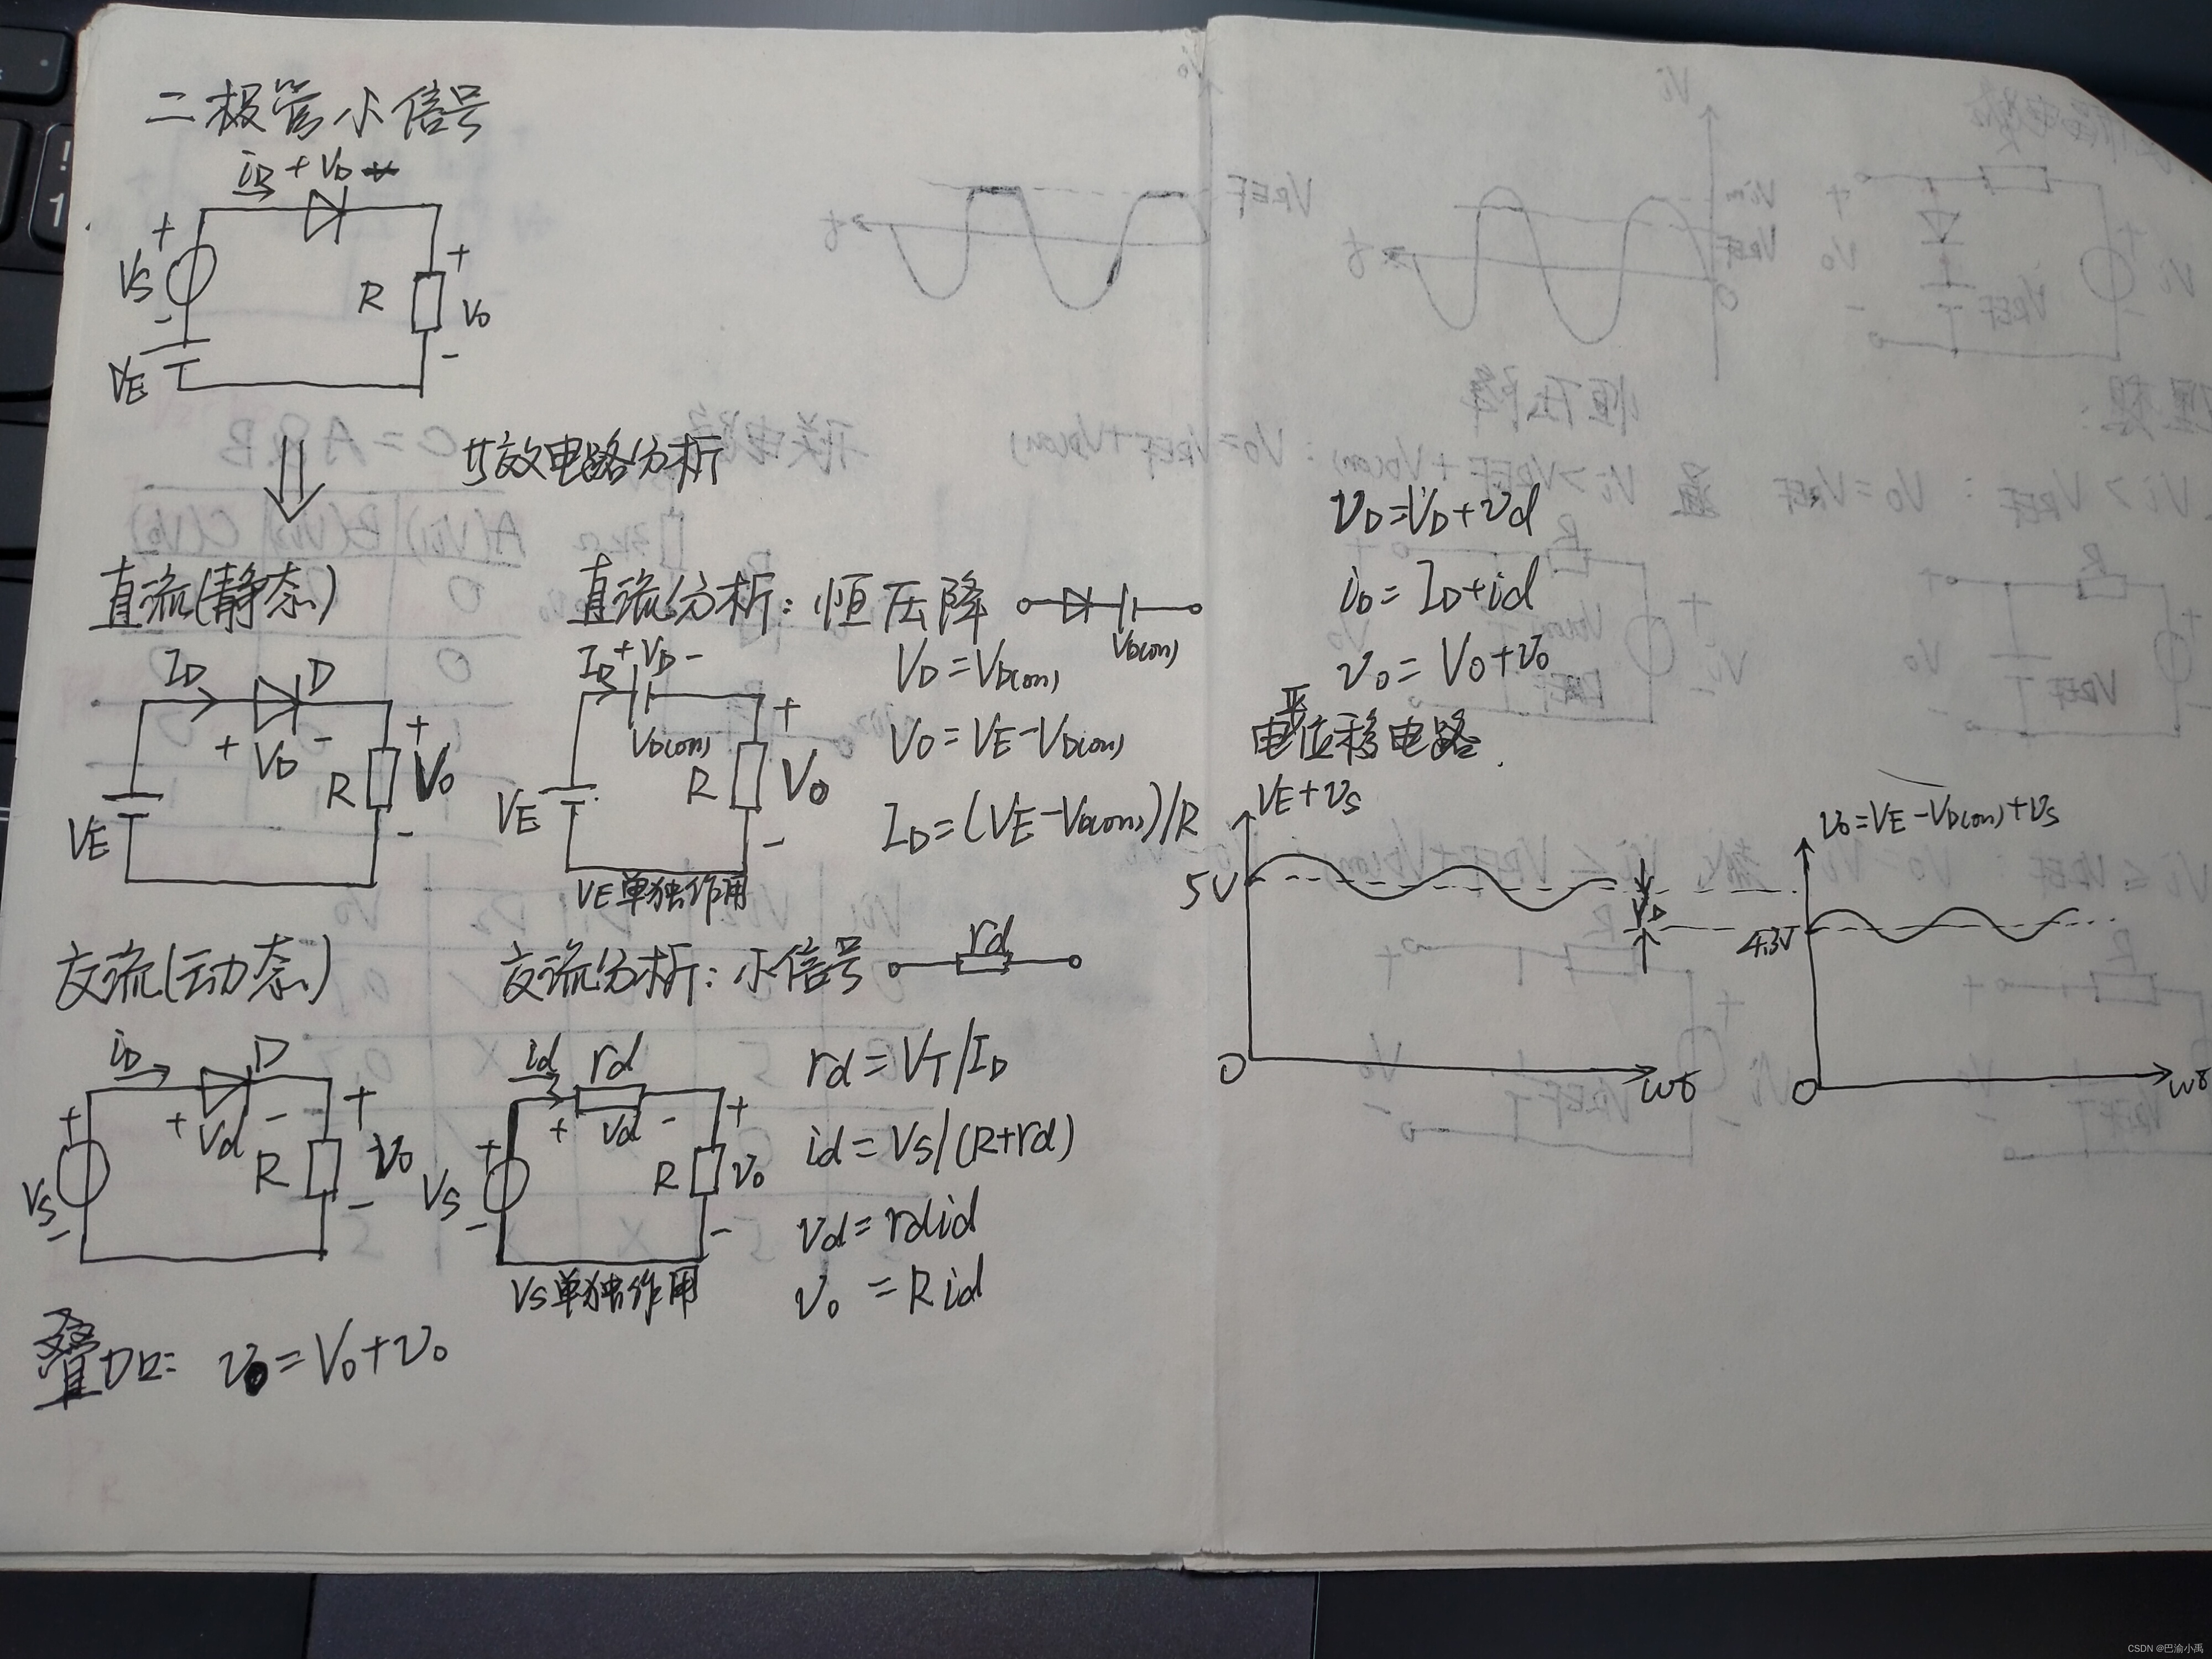 二极管小信号
iD + VD
+
VS
-
VE
R
+
Vo
-
等效电路分析
直流(静态)
ID
D
+ VD -
VE
R
+
Vo
-
直流分析：恒压降
VD(on)
ID + VD -
VD(on)
VE
R
+
Vo
-
VE单独作用
VD = VD(on)
VO = VE - VD(on)
ID = (VE - VD(on))/R
交流(动态)
iD
D
+ Vd -
+
VS
-
R
+
vo
-
交流分析：小信号
rd
id
rd
+ Vd -
+
VS
-
R
+
vo
-
VS单独作用
rd = VT/ID
id = VS/(R+rd)
vd = rdid
vo = Rid
叠加: vo = Vo + vo
vD = VD + vd
iD = ID + id
vo = Vo + vo
电平位移电路
VE + vs
5V
VD
O
wt
vo = VE - VD(on) + vs
4.3V
O
wt
! 1
CSDN @巴渝小禹